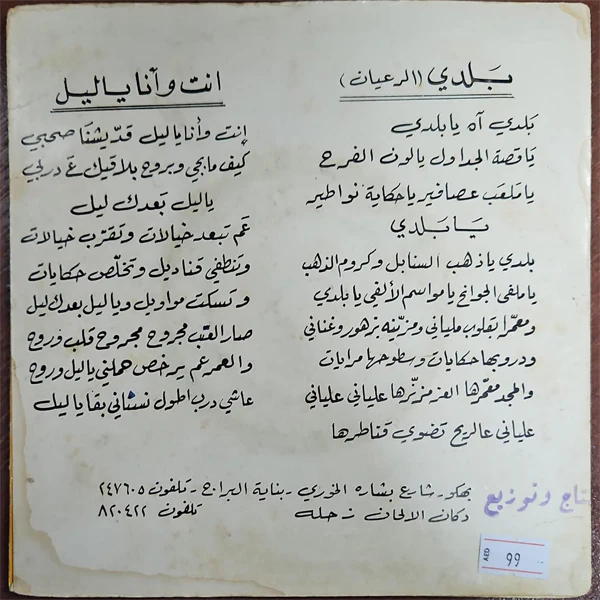 بَلدي (الرعيان)
بَلدي آه يا بلدي
يا قصة الجداول يا لون الفرح
يا ملعب عصافير يا حكاية نواطير
يا بَلدي
بلدي يا ذهب السنابل وكروم الذهب
يا ملفى الجوانح يا مواسم الألفي يا بلدي
ومعمّرا بقلوب ملياني ومزيّنه بزهور وغناني
ودروبها حكايات وسطوحها مرايات
والمجد معمّرها العز مزنّرها علياني علياني
علياني عالريح تضوي قناطرها
انت وأنا يا ليل
إنت وأنا يا ليل قدّيشنا صحبي
كيف ما بجي وبروح بلاقيك عَ دربي
يا ليل بَعدك ليل
عَم تبعد خيالات وتقرّب خيالات
وتنطفي قناديل وتخلّص حكايات
وتسكت مواويل ويا ليل بعدك ليل
صار القلب مجروح مجروح قلب وروح
والعمر عم يرخص هملني يا ليل وروح
عاشي درب اطول نستاني بقا يا ليل
شارع بشاره الخوري - بناية البراج - تلفون ٢٤٧٦٠٥
دكان الالحان زحله تلفون ٨٢٠٤٢٢
تاج وتوزيع
AED
99